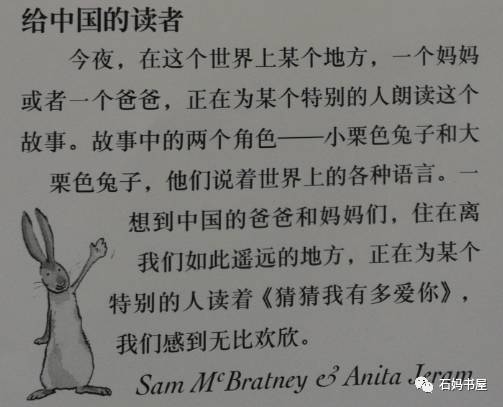 给中国的读者
今夜，在这个世界上某个地方，一个妈妈
或者一个爸爸，正在为某个特别的人朗读这个
故事。故事中的两个角色——小栗色兔子和大
栗色兔子，他们说着世界上的各种语言。一
想到中国的爸爸和妈妈们，住在离
我们如此遥远的地方，正在为某个
特别的人读着《猜猜我有多爱你》，
我们感到无比欢欣。
Sam McBratney & Anita Jeram
石妈书屋